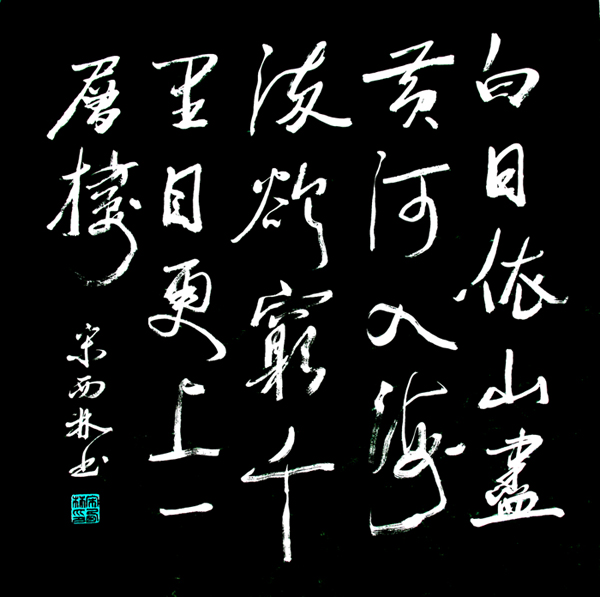 白日依山盡
黄河入海
流欲窮千
里目更上一
層樓
宋西林书